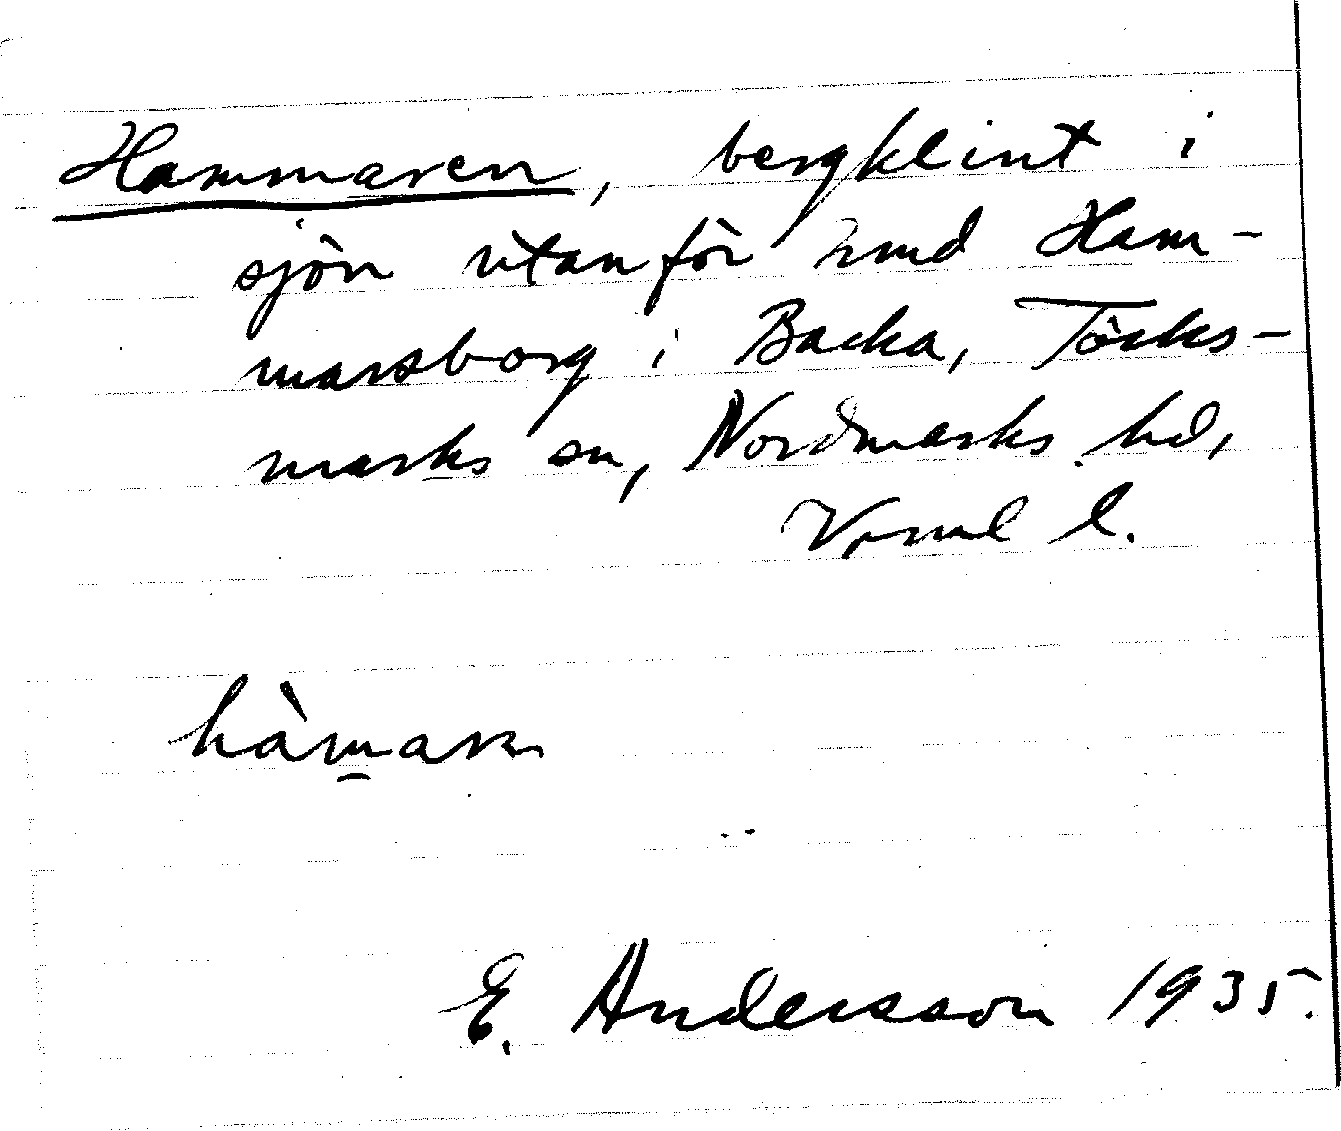 Hammaren, bergklint i
sjön utanför Ham-
marsborg i Backa, Töcks-
marks sn, Nordmarks hd,
Värml l.
hàmarn
E. Andersson 1935.